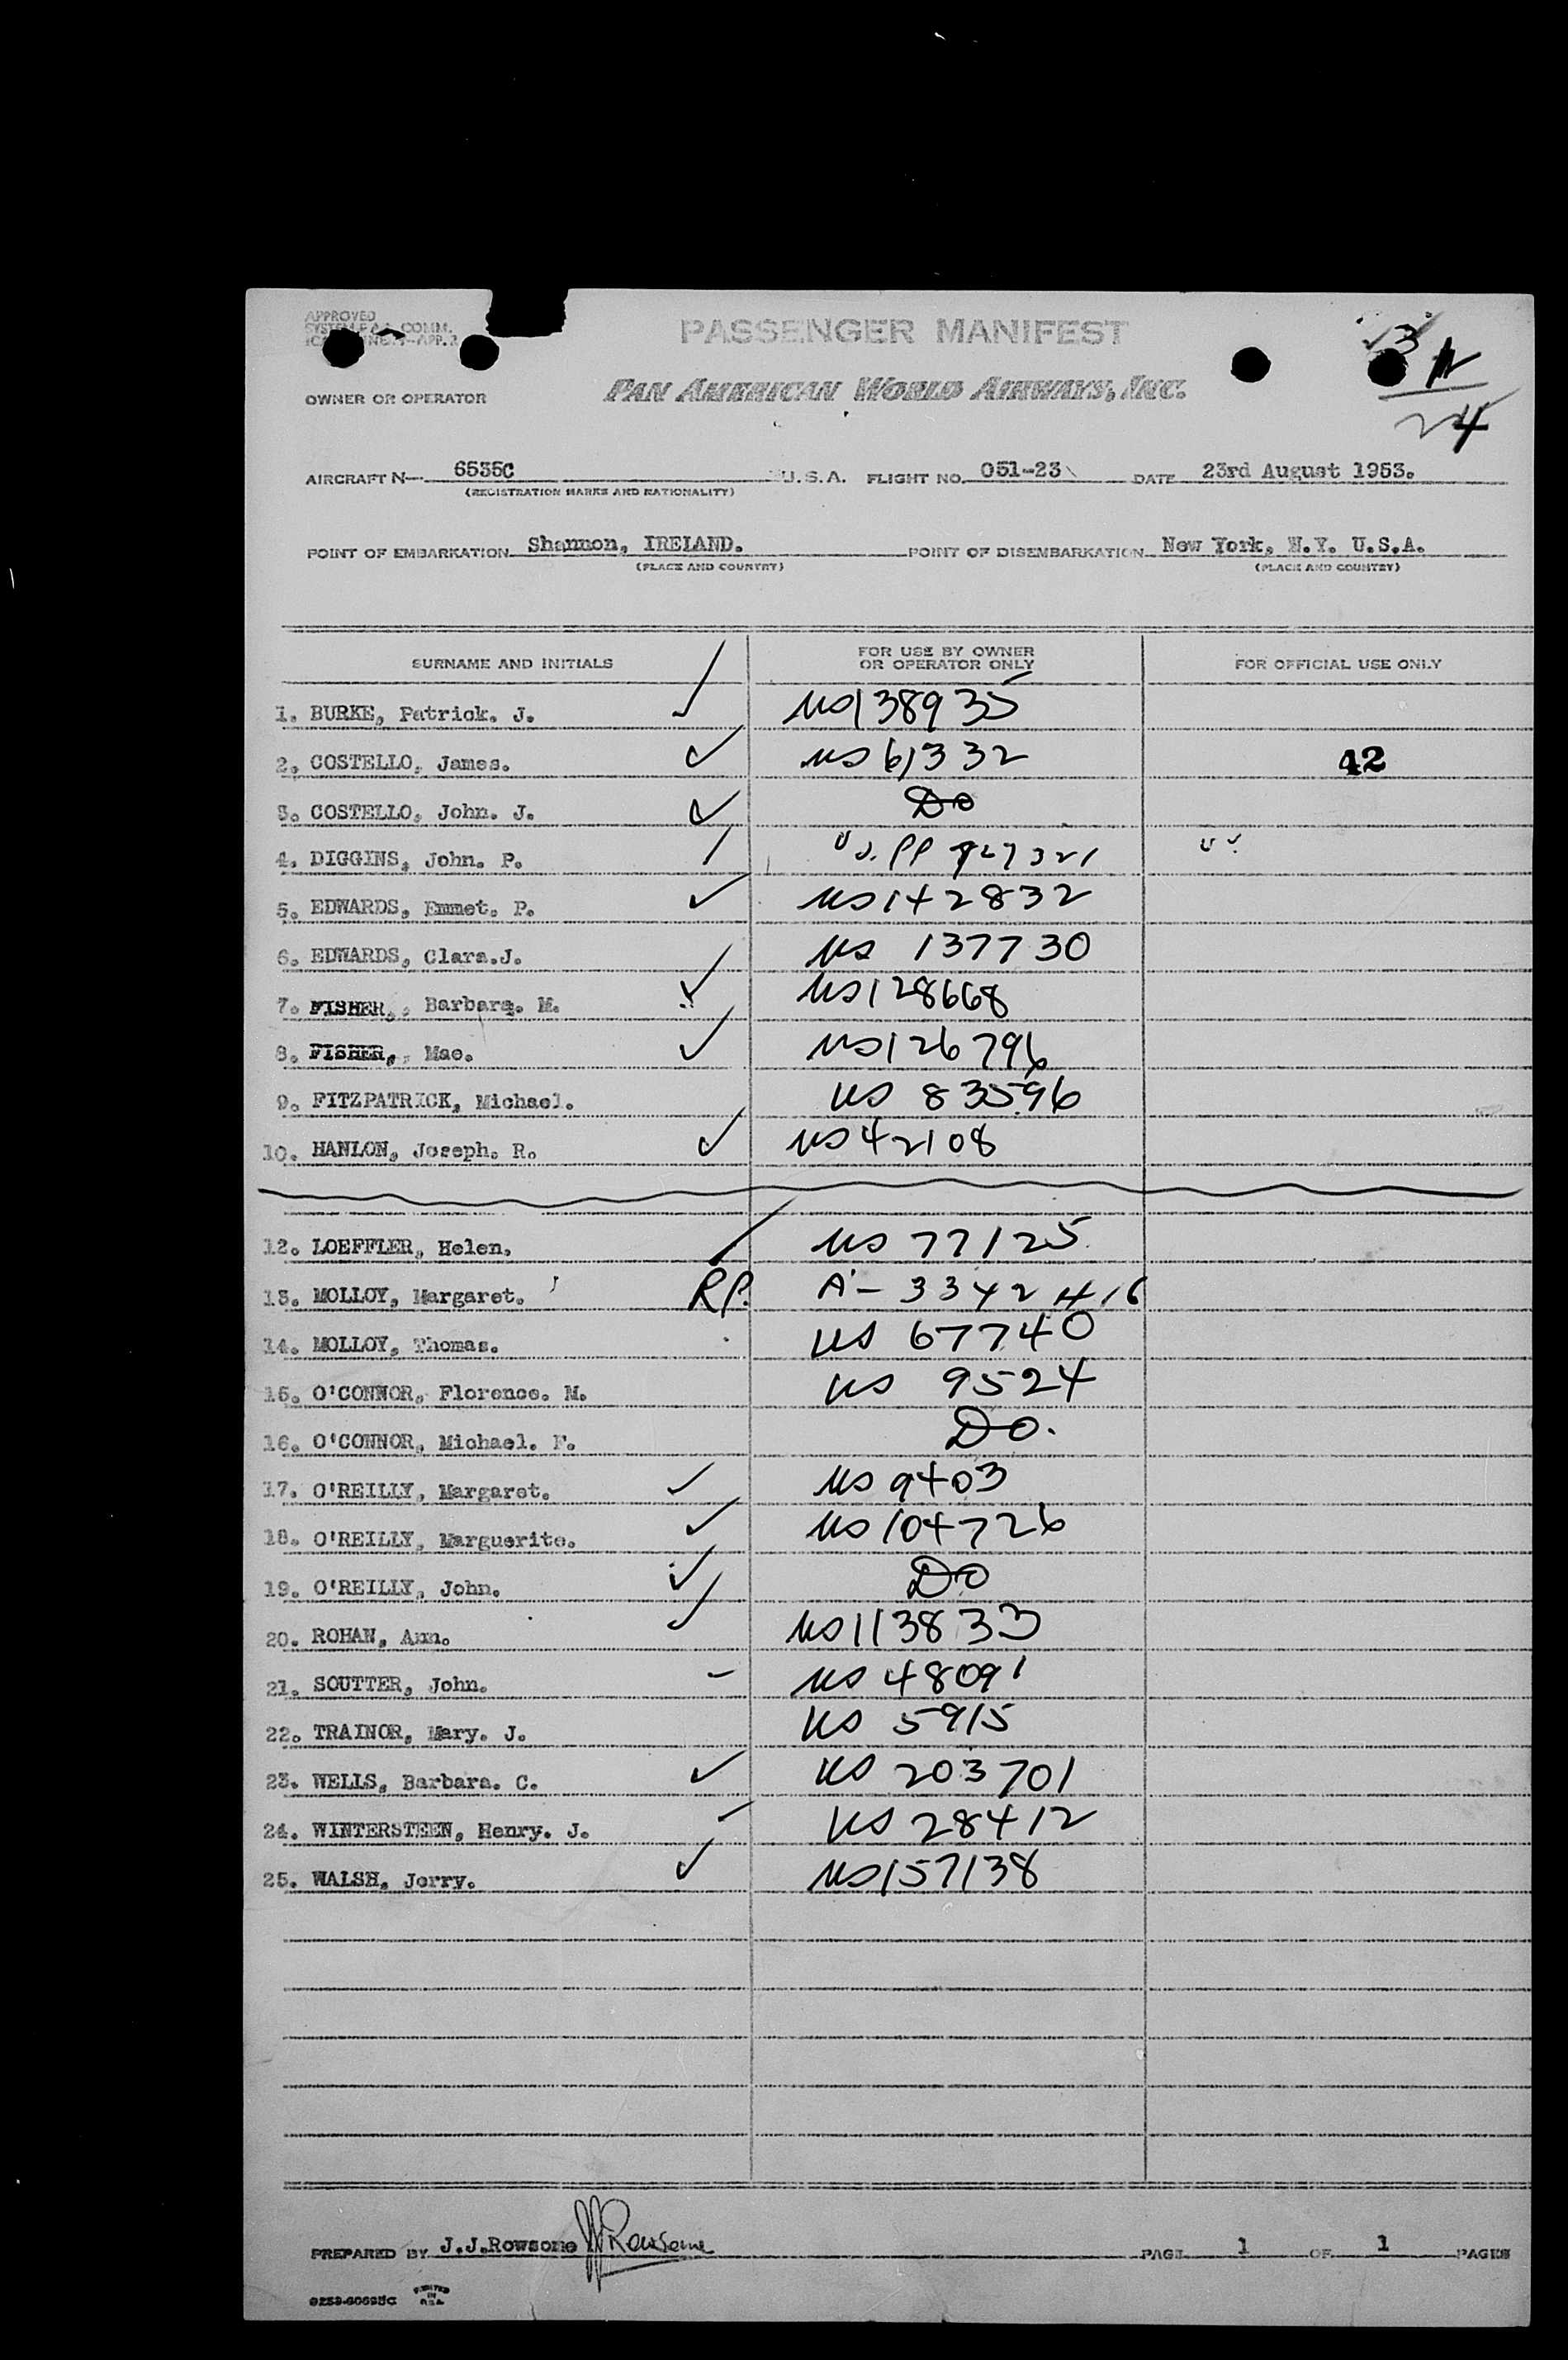 APPROVED
PASSENGER MANIFEST
PAN AMERICAN WORLD AIRWAYS, INC.
24
OWNER OR OPERATOR
AIRCRAFT N— 6535C U.S.A. FLIGHT NO. 051-23 DATE 23rd August 1953.
(REGISTRATION MARKS AND NATIONALITY)
POINT OF EMBARKATION Shannon, IRELAND. POINT OF DISEMBARKATION New York, N.Y. U.S.A.
(PLACE AND COUNTRY) (PLACE AND COUNTRY)
SURNAME AND INITIALS FOR USE BY OWNER OR OPERATOR ONLY FOR OFFICIAL USE ONLY
1. BURKE, Patrick. J. US138935
2. COSTELLO, James. US 61332 42
3. COSTELLO, John. J. Do
4. DIGGINS, John. P.
5. EDWARDS, Emmet. P. US142832
6. EDWARDS, Clara.J. US 137730
7. FISHER, Barbara. M. US128668
8. FISHER, Mae. US126796
9. FITZPATRICK, Michael. US 83596
10. HANLON, Joseph. R. US42108
12. LOEFFLER, Helen. US 77125
13. MOLLOY, Margaret. RP. A-3342416
14. MOLLOY, Thomas. US 67740
15. O'CONNOR, Florence. M. US 9524
16. O'CONNOR, Michael. F. Do.
17. O'REILLY, Margaret. US 9403
18. O'REILLY, Marguerite. US 104726
19. O'REILLY, John. Do
20. ROHAN, Ann. US113833
21. SOUTTER, John. US 48091
22. TRAINOR, Mary. J. US 5915
23. WELLS, Barbara. C. US 203701
24. WINTERSTEEN, Henry. J. US 28412
25. WALSH, Jerry. US157138
PREPARED BY J.J.Rowsome JJ Rowsome PAGE 1 OF 1 PAGES
PRINTED IN U.S.A.